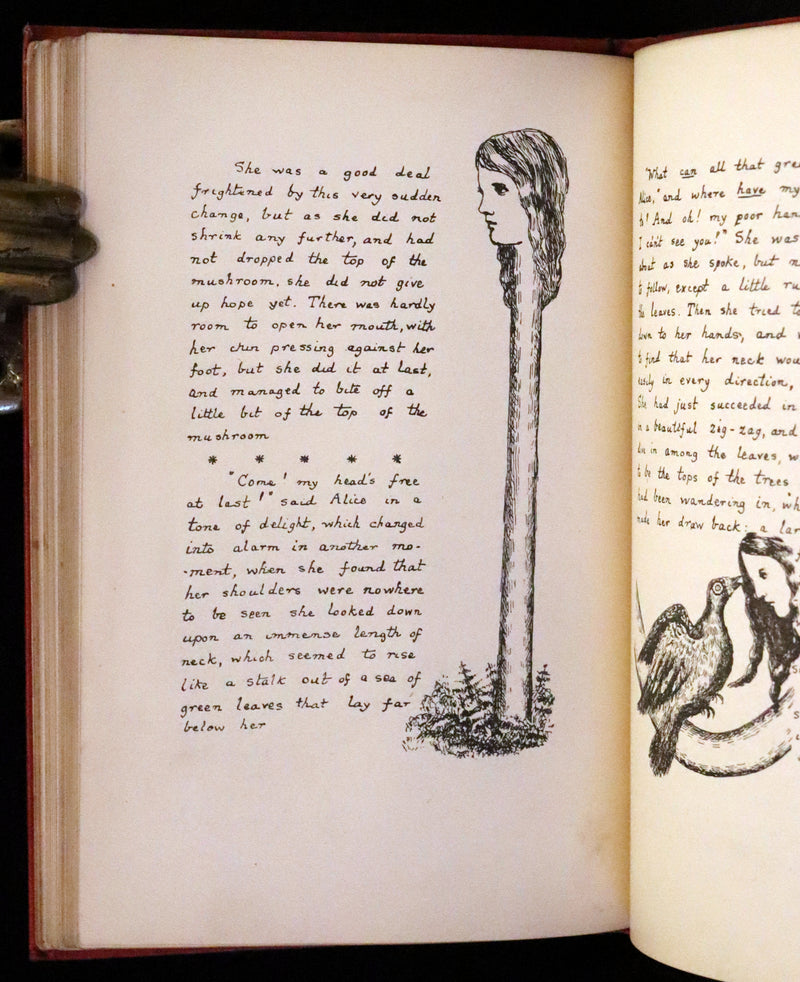 She was a good deal
frightened by this very sudden
change, but as she did not
shrink any further, and had
not dropped the top of the
mushroom, she did not give
up hope yet. There was hardly
room to open her mouth, with
her chin pressing against her
foot, but she did it at last,
and managed to bite off a
little bit of the top of the
mushroom
* * * * *
"Come! my head's free
at last!" said Alice in a
tone of delight, which changed
into alarm in another mo-
-ment, when she found that
her shoulders were nowhere
to be seen she looked down
upon an immense length of
neck, which seemed to rise
like a stalk out of a sea of
green leaves that lay far
below her
"What can all that
Alice, "and where have my
And oh! my poor
I can't see you?" She was
about as she spoke, but
to follow, except a little
the leaves. Then she tried
down to her hands, and
to find that her neck
easily in every direction,
She had just succeeded in
in a beautiful zig-zag, and
in among the leaves,
to be the tops of the trees
had been wandering in,
made her draw back: a